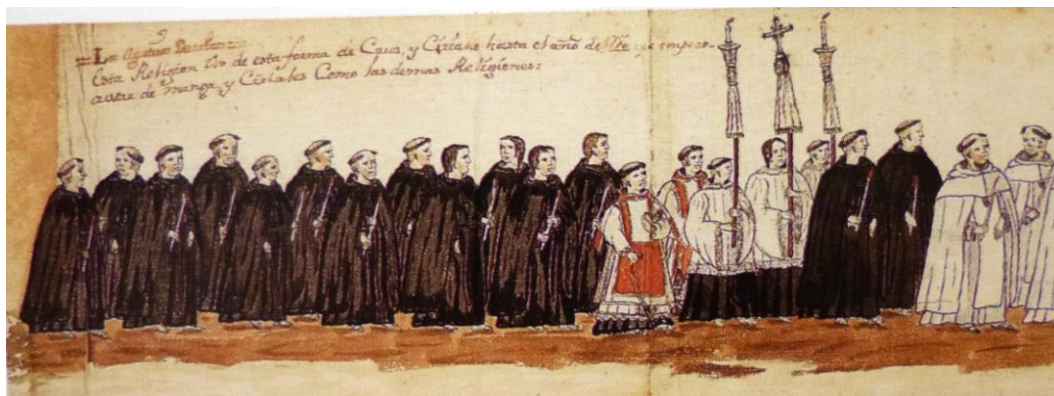 S
Los Agustinos Descalzos
Esta Religion Uso de esta forma de Cruz, y Ciriales hasta el año de que empezo
a usar de manga, y Ciriales Como las demas Religiones: